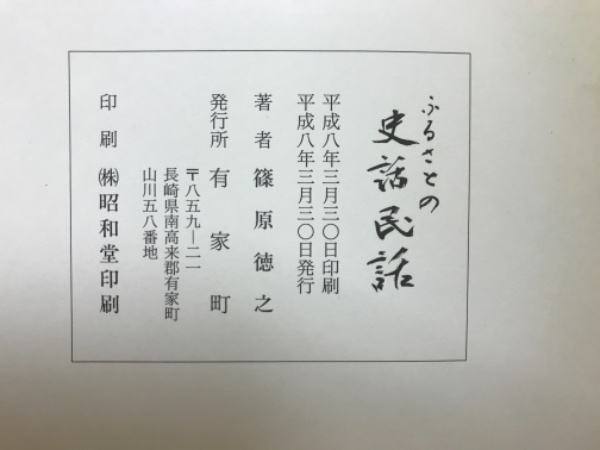 ふるさとの
史話民話
平成八年三月三〇日印刷
平成八年三月三〇日発行
著者 篠原徳之
発行所 有家町
〒八五九―二一
長崎県南高来郡有家町
山川五八番地
印刷 ㈱昭和堂印刷